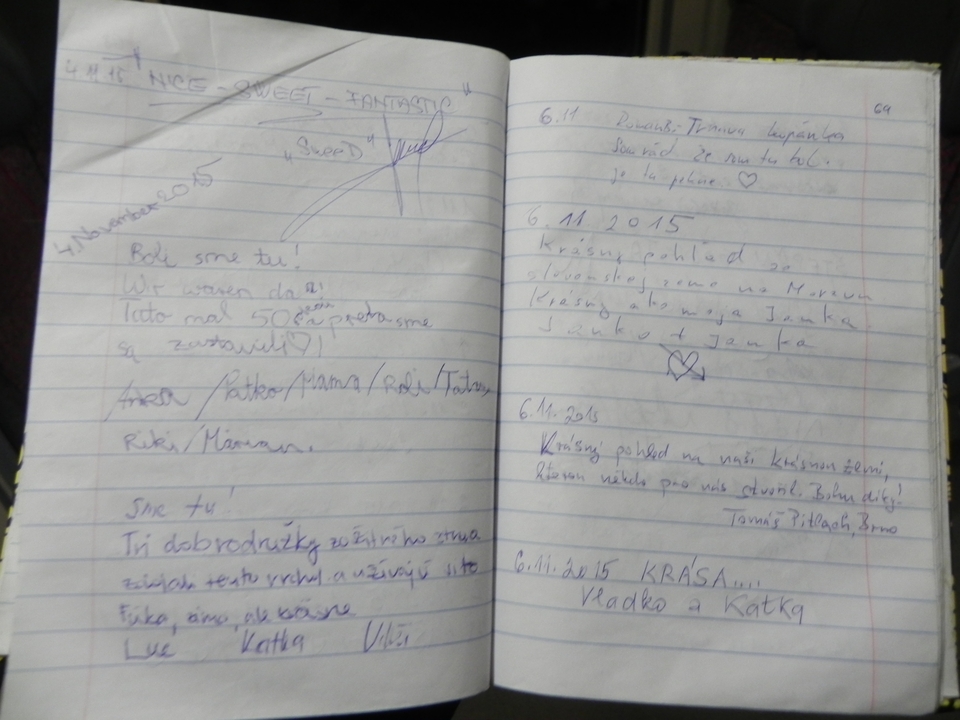 4.11.15 "NICE - SWEET - FANTASTIC"
"SweeD"
4. November 2015
Boli sme tu!
Wir waren da!
mal 50 sme
sa zastavili ♡!
/ Patko / Mama / Robi /
Riki / Marian.
Sme tu!
Tri dobrodružky zo Žitného
tento vrchol a užívajú si to
Fúka, zima, ale krásne
Luc Katka
69
6.11 Trnava kopánka
Som rád že som tu bol.
je tu pekne ♡
6. 11 2015
Krásny pohľad zo
slovenskej zeme na Moravu
Krásny ako moja Janka
Janko + Janka
6.11.2015
Krásný pohled na naši krásnou zemi,
kterou někdo pro nás stvořil. Bohu díky!
Tomáš Pitlach, Brno
6.11.2015 KRÁSA....
Vladko a Katka